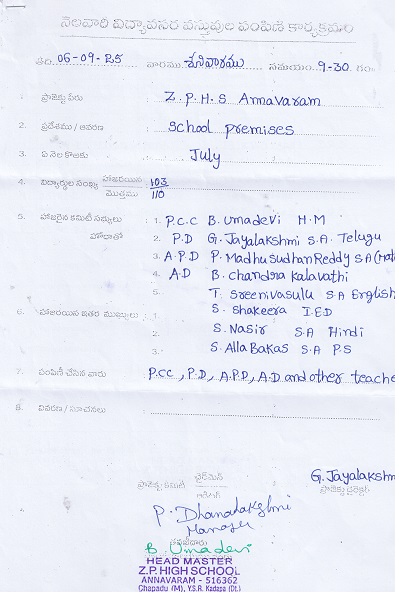 నెలవారి విద్యావసర వస్తువుల పంపిణి కార్యక్రమం
తేది. 06-09-25 వారము శనివారము సమయం 9-30 గం.
1. ప్రాజెక్టు పేరు : Z.P.H.S Annavaram
2. ప్రదేశము / ఆవరణ : School premises
3. ఏ నెల కొఱకు : July
4. విద్యార్థుల సంఖ్య హాజరయిన : 103
మొత్తము 110
5. హాజరైన కమిటి సభ్యులు : 1. P.C.C B. Umadevi H.M
హోదాతో 2. P.D G. Jayalakshmi S.A. Telugu
3. A.P.D P. Madhu sudhan Reddy S A
4. A.D B. Chandra Kalavathi
5. T. Sreenivasulu S A English
6. హాజరయిన ఇతర ముఖ్యులు : 1 S. Shakeera I.E.D
2. S. Nasir S.A Hindi
3. S. Alla Bakas S.A P.S
7. పంపిణీ చేసిన వారు : P.C.C, P.D, A.P.D, A.D and other teache
8. వివరణ / సూచనలు :
చైర్‌మెన్ G. Jayalakshm
ప్రాజెక్టు కమిటీ ప్రాజెక్టు డైరెక్టర్
P. Dhanalakshmi
Manager
B. Umadevi
HEAD MASTER
Z.P. HIGH SCHOOL
ANNAVARAM - 516362
Chapadu (M), Y.S.R. Kadapa (Dt.)